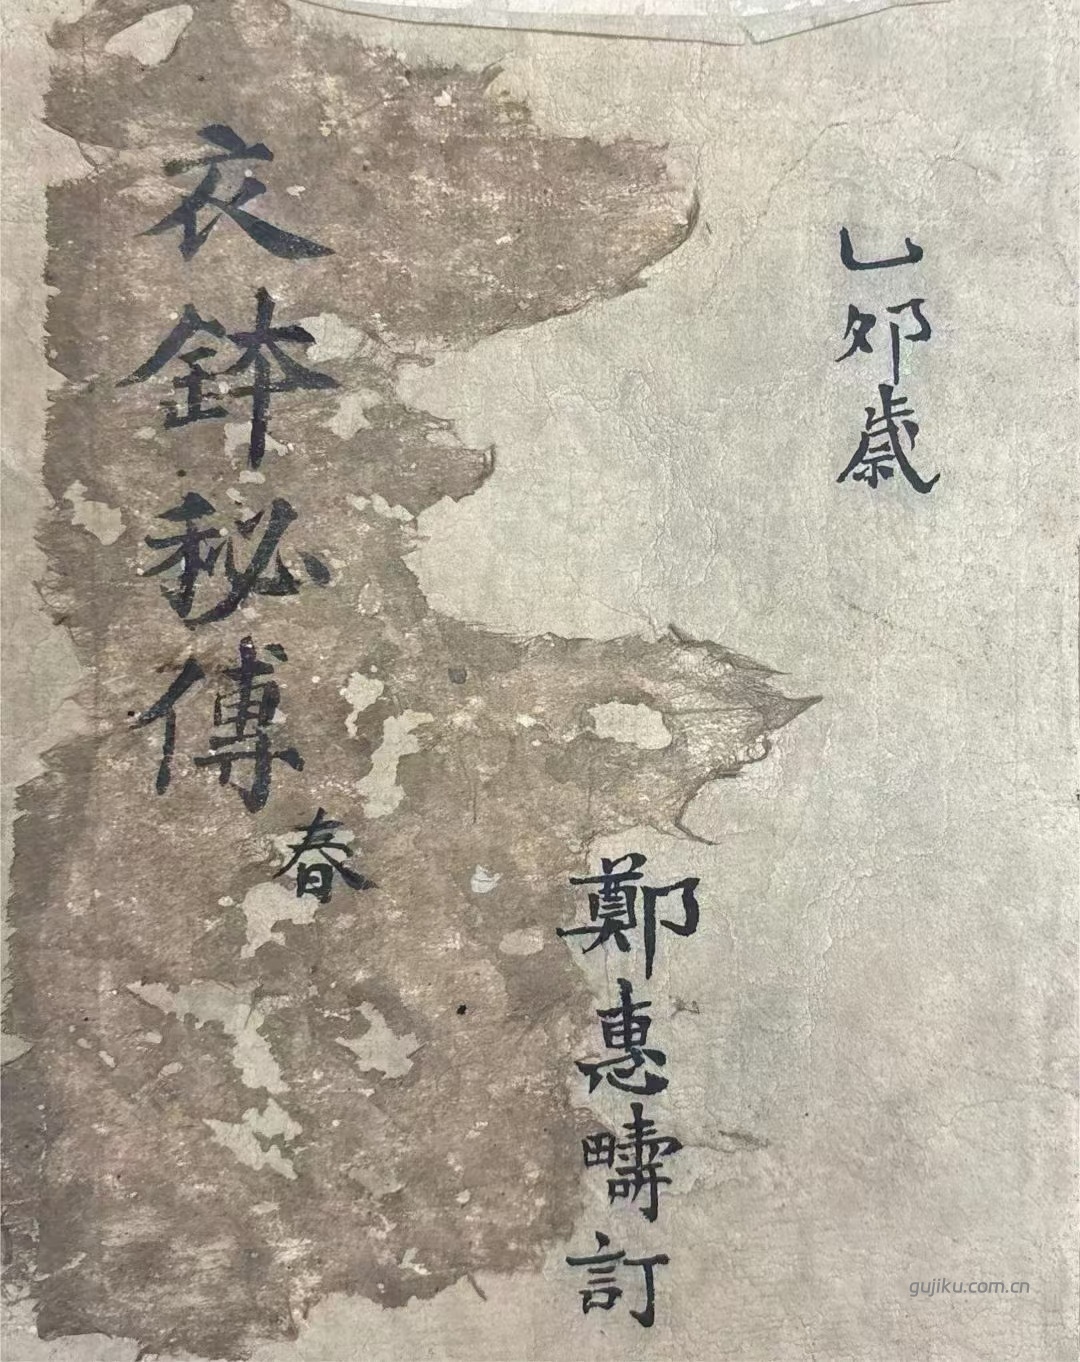 乙卯歲
鄭惠疇訂
衣鉢秘傳
春
gujiku.com.cn